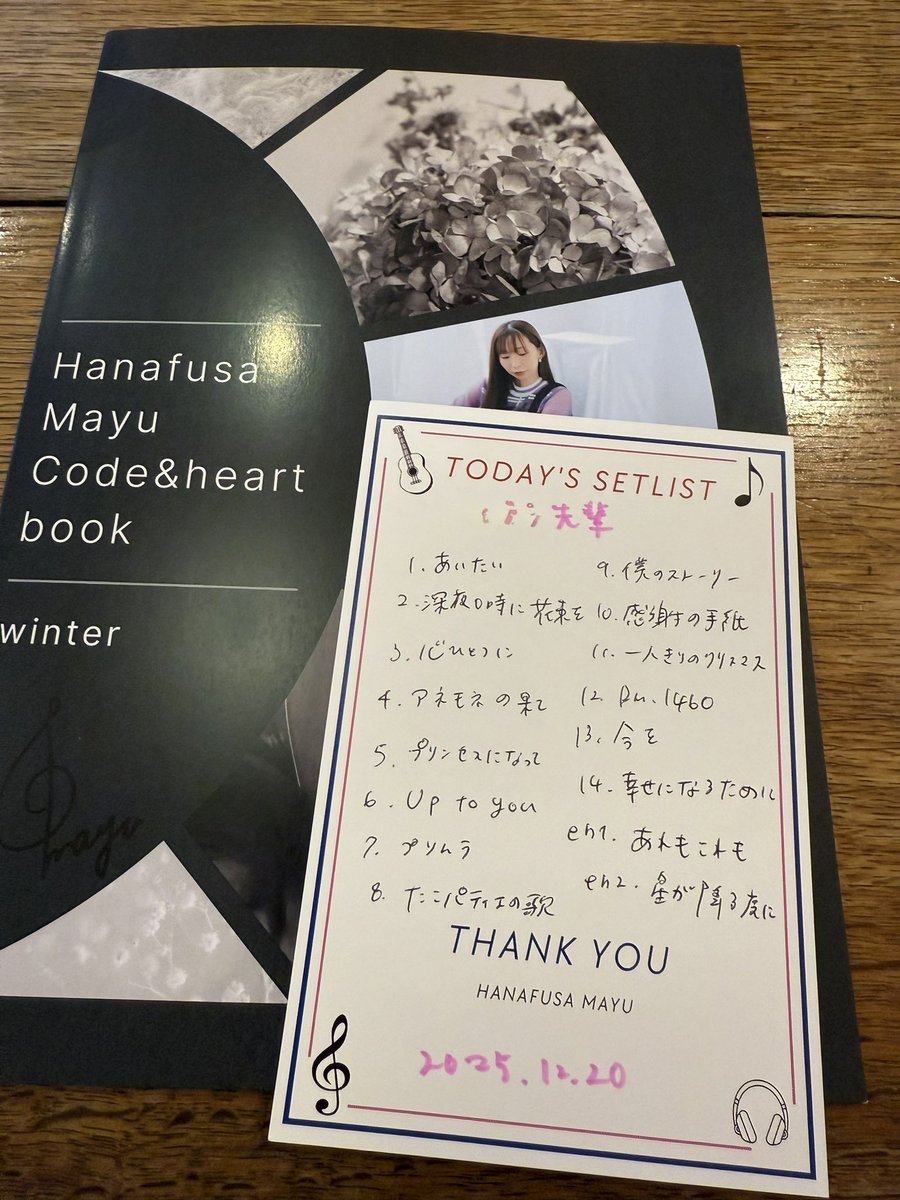 Hanafusa
Mayu
Code&heart
book
winter
mayu
TODAY'S SETLIST
先輩
1. あいたい
2. 深夜0時に花束を
3. 心ひとつに
4. アネモネの果て
5. プリンセスになって
6. Up to you
7. プリムラ
8. たこパティエの歌
9. 僕のストーリー
10. 感謝の手紙
11. 一人きりのクリスマス
12. 1460
13. 今を
14. 幸せになるために
en1. あれもこれも
en2. 星が降る度に
THANK YOU
HANAFUSA MAYU
2025.12.20